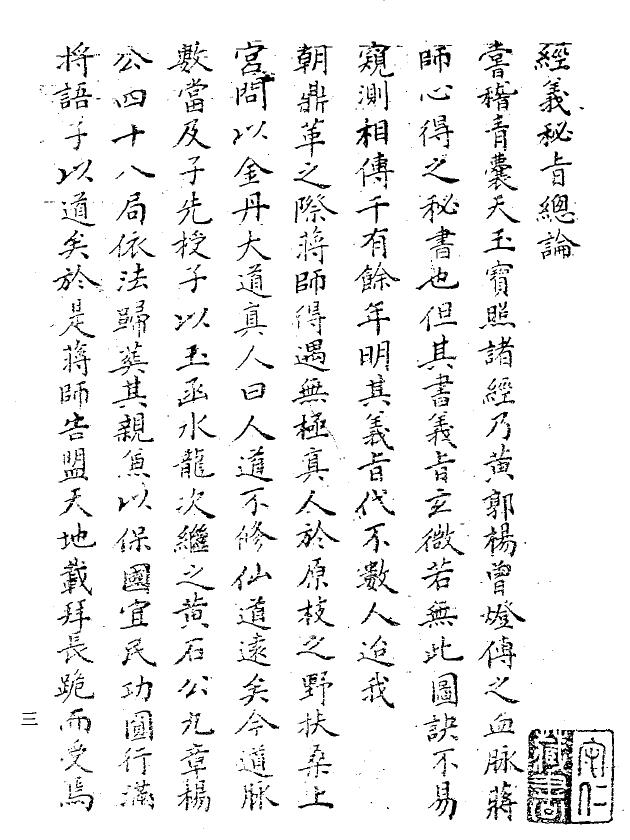 經義秘旨總論
嘗稽青囊天玉寶照諸經乃黃郭楊曾燈傳之血脉蔣
師心得之秘書也但其書義旨玄微若無此圖訣不易
窺測相傳千有餘年明其義旨代不數人迨我
朝鼎革之際蔣師得遇無極真人於原枝之野扶桑上
宮問以金丹大道真人曰人道不修仙道遠矣今道脉
數當及子先授子以玉函水龍次繼之黃石公九章楊
公四十八局依法歸葬其親兼以保國宜民功圓行滿
将語子以道矣於是蔣師告盟天地載拜長跪而受焉
三
仁
藏書